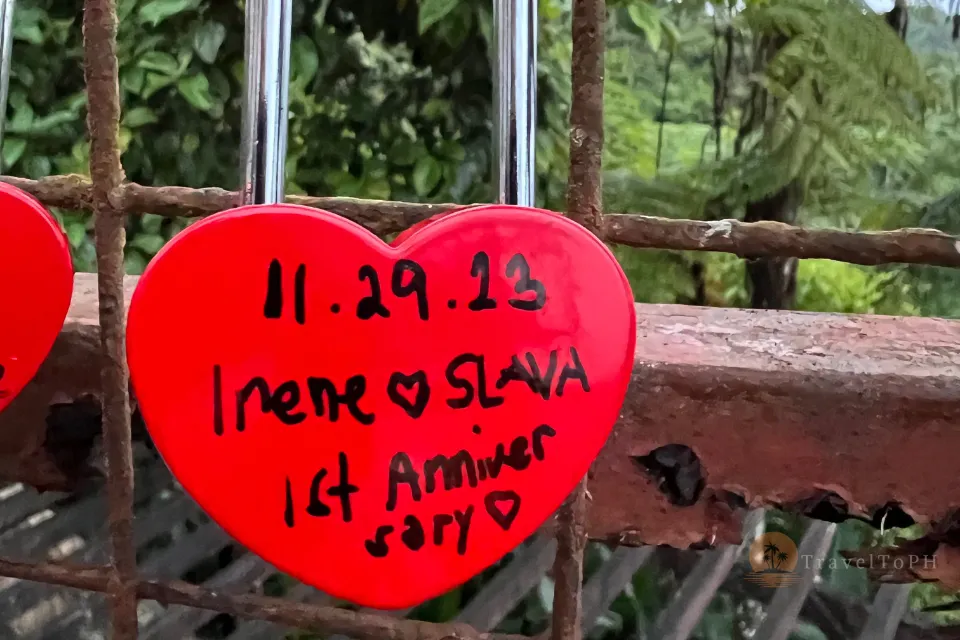 11.29.13
Irene ♡ SLAVA
1st Anniver
sary ♡
TravelToPH